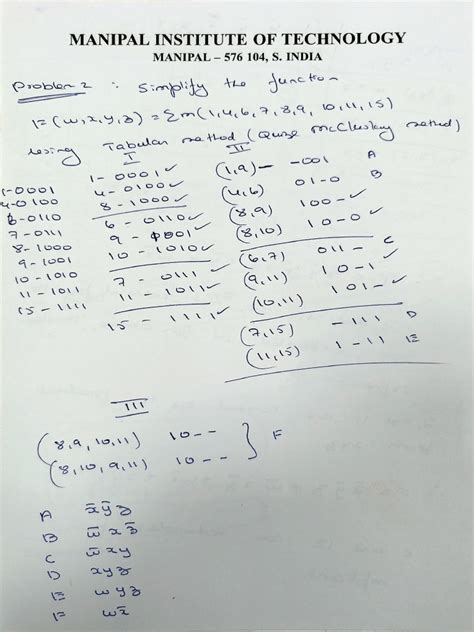 MANIPAL INSTITUTE OF TECHNOLOGY
MANIPAL – 576 104, S. INDIA
Problem 2 : Simplify the function
F = (w,x,y,z) = Σm(1,4,6,7,8,9, 10,11,15)
using Tabular method (Quine McCluskey method)
I II
1-0001 1 - 0001✓ (1,9) - -001 A
4-0100 4 - 0100✓ (4,6) 01-0 B
6-0110 8 - 1000✓ (8,9) 100-✓
7-0111 6 - 0110✓ (8,10) 10-0✓
8-1000 9 - 1001✓ (6,7) 011- C
9-1001 10 - 1010✓ (9,11) 10-1✓
10-1010 7 - 0111✓ (10,11) 101-✓
11-1011 11 - 1011✓ (7,15) -111 D
15-1111 15 - 1111✓ (11,15) 1-11 E
III
(8,9,10,11) 10-- } F
(8,10,9,11) 10--
A x̄ȳz
B w̄xz̄
C w̄xy
D xyz
E wyz
F wx̄